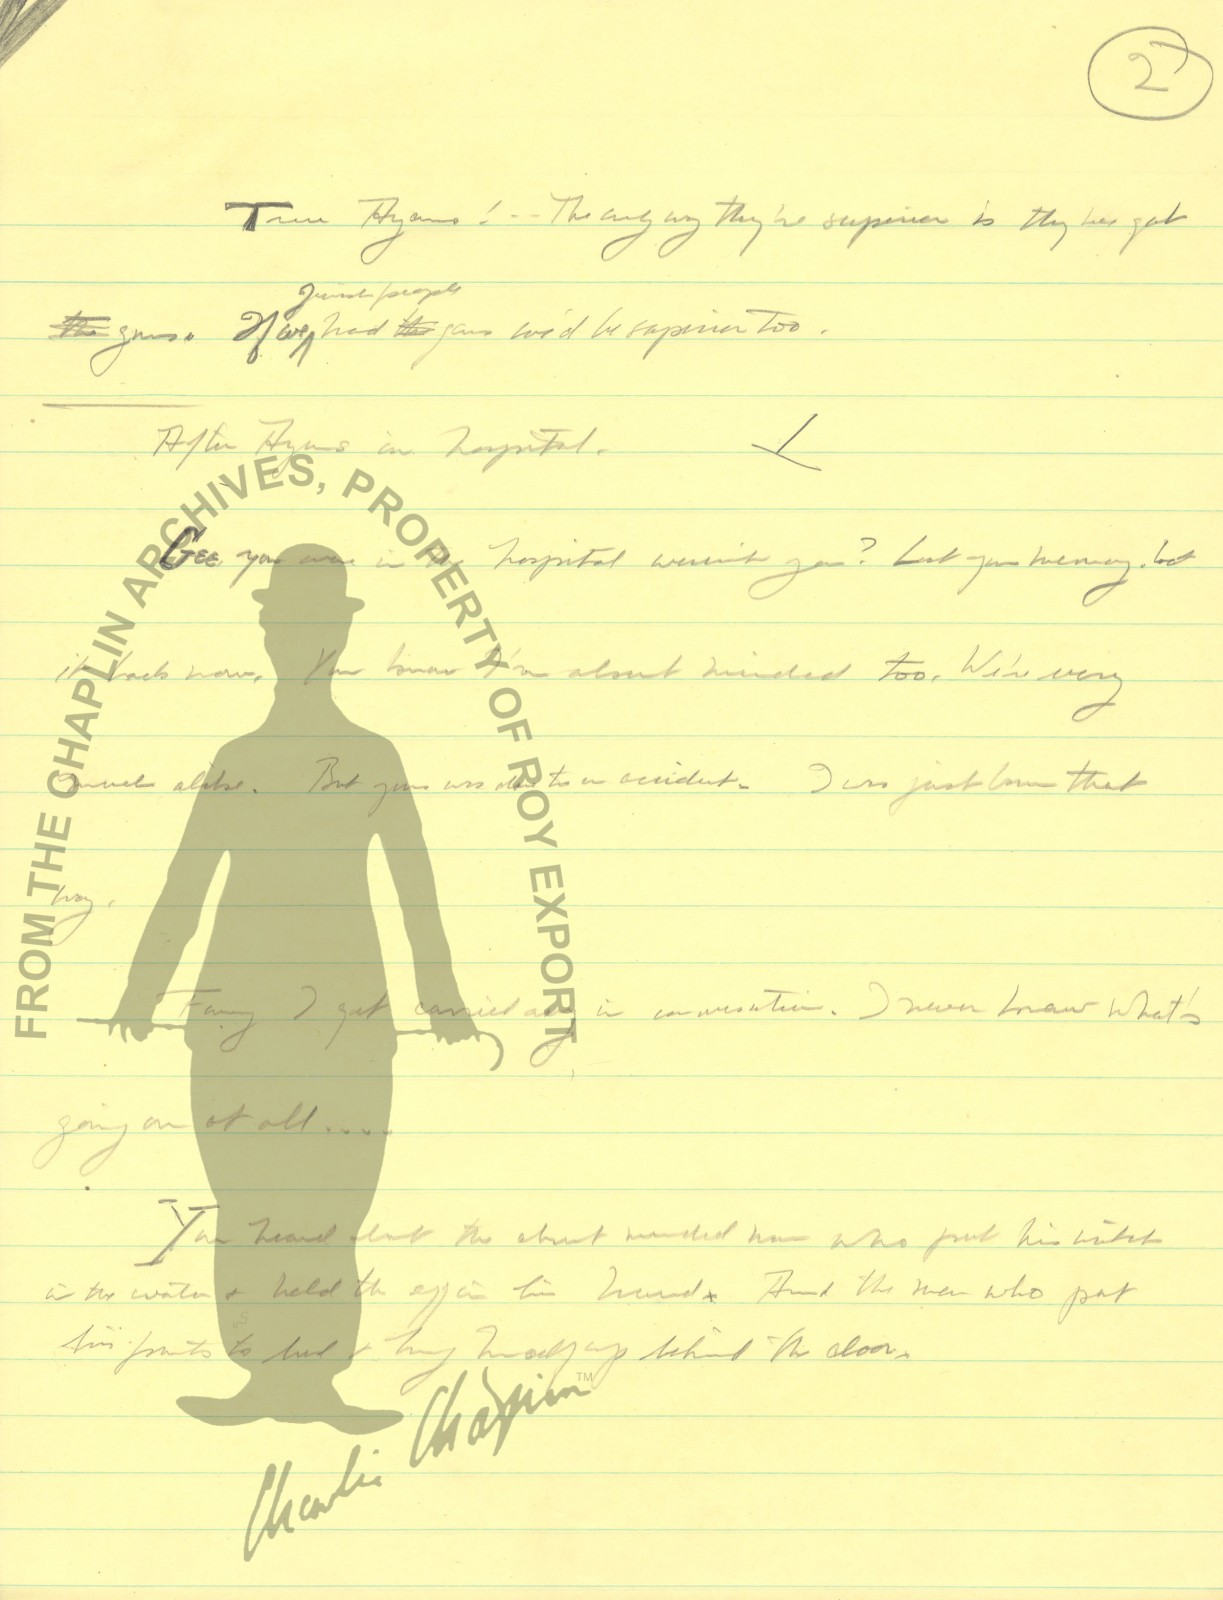 2
True Hynes! -- The only way they're superior is they've got
Jewish people
the guns. If we had the guns we'd be superior too.
After Hynes in hospital.
Gee, you were in the hospital weren't you? Lost your memory, but
it back now. You know I'm absent minded too. We're very
much alike. But yours was due to an accident. I was just born that
way.
Funny I get carried away in conversation. I never know what's
going on at all....
You heard about the absent minded man who put his watch
in the water & held the egg in his hand. And the man who put
his pants to bed & hung himself up behind the door.
FROM THE CHAPLIN ARCHIVES, PROPERTY OF ROY EXPORT
Charlie Chaplin
TM